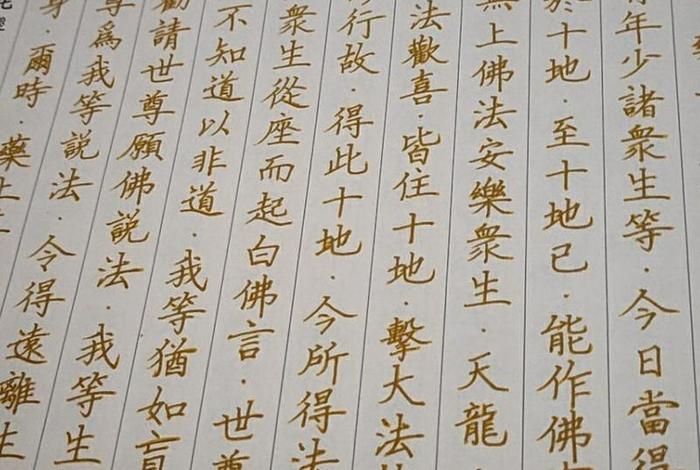 年少諸衆生等．今日當得
於十地．至十地已．能作佛
無上佛法安樂衆生．天龍
法歡喜．皆住十地．擊大法
行故．得此十地．今所得法
衆生從座而起白佛言．世尊
不知道以非道．我等猶如盲
勸請世尊願佛說法．我等生
尊爲我等說法．令得遠離生
身．爾時．藥上